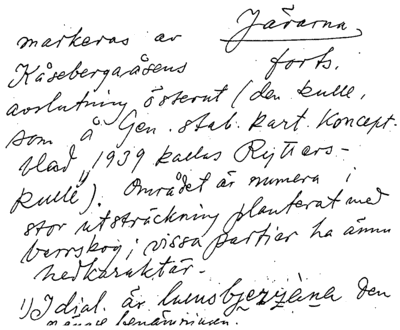 Järarna
markeras av
Kåsebergaåsens forts.
avslutning österut (den kulle,
som å Gen. stab. kart. Koncept-
blad 1939 kallas Ryttars-
kulle¹⁾). Området är numera i
stor utsträckning planterat med
barrskog; vissa partier ha ännu
hedkaraktär.
¹⁾ I dial. är den
benämningen.